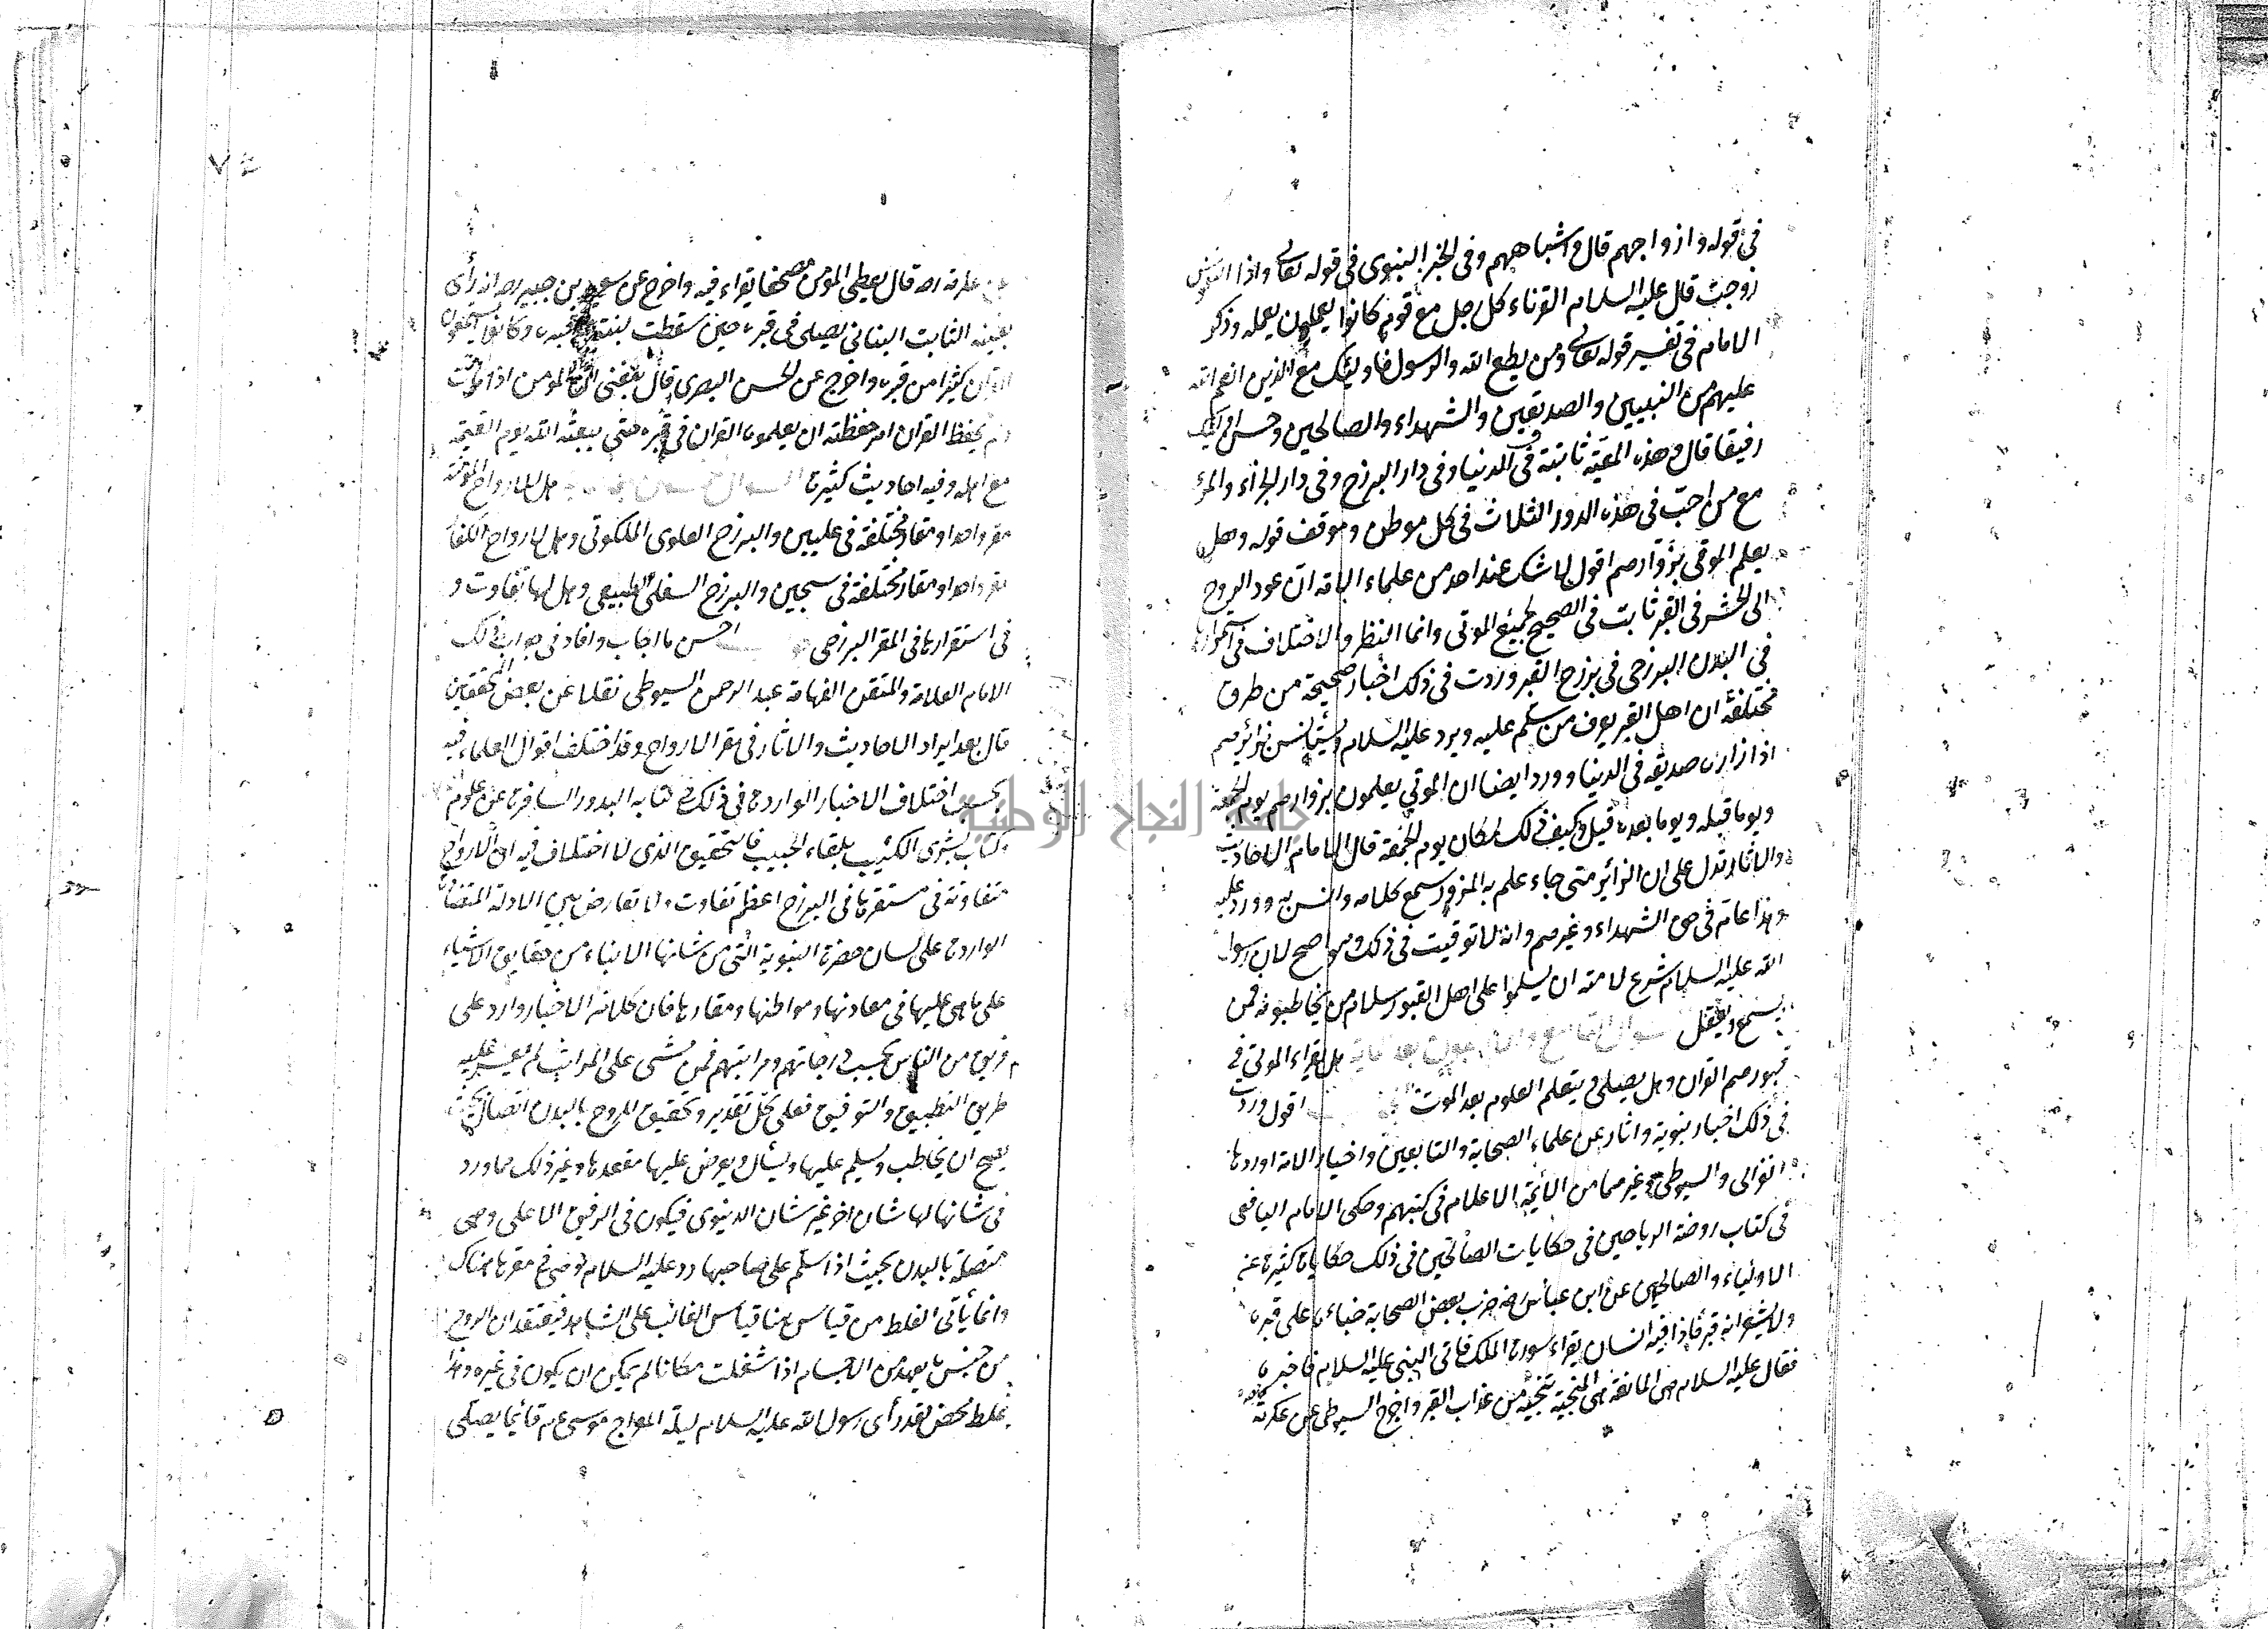 في قوله وازواجهم قال واشباههم وفي الخبر النبوي في قوله تعالى واذا النفوس
زوجت قال عليه السلام القرناء كل رجل مع قوم كانوا يعملون بعمله وذكر
الامام في تفسير قوله تعالى ومن يطع الله والرسول فاولئك مع الذين انعم الله
عليهم من النبيين والصديقين والشهداء والصالحين وحسن اولئك
رفيقا قال وهذه المعية ثابتة في الدنيا وفي دار البرزخ وفي دار الجزاء والمرء
مع من احب في هذه الدور الثلاث في كل موطن وموقف قوله وهل
يعلم الموتى بزوارهم اقول لا شك عند احد من علماء الباقه ان عود الروح
الى في القبر ثابت في الصحيح لجميع الموتى وانما النظر والاختلاف في
في البدن البرزخي في برزخ القبر وردت في ذلك اخبار صحيحة من طرق
مختلفة ان اهل القبر يعرف من سلم عليه ويرد عليه السلام ويستأنس بزائرهم
اذا زاره صديقه في الدنيا وورد ايضا ان الموتى يعلمون بزوارهم يوم الجمعة
ويوما قبله ويوما بعده قيل وكيف ذلك لمكان يوم الجمعة قال الامام الاحاديث
والاثار تدل على ان الزائر متى جاء علم به المزور سمع كلامه وانس به وورد عليه
وهذا عام في حق الشهداء وغيرهم وانه لا توقيت في ذلك وهو اصح لان رسول
الله عليه السلام شرع لامته ان يسلموا على اهل القبور سلام من يخاطبونه ممن
يسمع ويعقل سؤال هل يقراء الموتى في
قبورهم القران وهل يصلى ويتعلم العلوم بعد الموت اقول وردت
في ذلك اخبار نبوية واثار عن علماء الصحابة والتابعين واخيار الامة اوردها
الغزالى والسيوطى وغيرهما من الائمة الاعلام في كتبهم وحكى الامام اليافعى
في كتاب روضة الرياحين في حكايات الصالحين في ذلك حكايات كثيرة عن
الاولياء والصالحين عن ابن عباس رضه ضرب بعض الصحابة خباءه على قبره
ولا يشعر انه قبر فاذا فيه انسان يقراء سورة الملك فاتى النبي عليه السلام فاخبره
فقال عليه السلام هى المانعة هى المنجية تنجيه من عذاب القبر واخرج السيوطى عن عكرمة
قال يعطى المؤمن مصحفا يقراء فيه واخرج عن سعيد بن جبير رضه انه رأى
بعينه الثابت البناني يصلى في قبره حين سقطت لبنته وكانوا يسمعون
القران كثيرا من قبره واخرج عن الحسن البصري قال بلغنى ان المؤمن اذا مات
ولم يحفظ القران امر حفظته ان يعلموه القران في قبره حتى يبعثه الله يوم القيمة
مع اهله وفيه احاديث كثيرة هل للارواح المؤمنة
مقر واحد او مقار مختلفة في عليين والبرزخ العلوى الملكوتى وهل لارواح الكفار
مقر واحد او مقار مختلفة في سجين والبرزخ السفلى الطبيعى وهل لها تفاوت و
في استقرارها في المقر البرزخى احسن ما اجاب وافاد في جواب ذلك
الامام العلامة والمتقن الفهامة عبد الرحمن السيوطى نقلا عن بعض المحققين
قال بعد ايراد الاحاديث والاثار في مقر الارواح وقد اختلف اقوال العلماء فيه
بحسب اختلاف الاخبار الواردة في ذلك كتابه البدور السافرة عن علوم
كتاب بشرى الكئيب بلقاء الحبيب فالتحقيق الذى لا اختلاف فيه ان الارواح
متفاوتة في مستقرها في البرزخ اعظم تفاوت ولا تعارض بين الادلة
الواردة على لسان حضرة النبوية التى من شانها الانباء من حقايق الاشياء
على ماهى عليها في معادنها ومواطنها ومقارها فان كلا من الاخبار وارد على
فريق من الناس بحسب درجاتهم ومراتبهم فمن مشى على المراتب لم يعسر عليه
طريق التطبيق والتوفيق فعلى كل تقدير وتحقيق للروح بالبدن اتصال بحيث
يصح ان يخاطب ويسلم عليها ويسأل ويعرض عليها مقعدها وغير ذلك مما ورد
في شانها لها شان اخر غير شان الدنيوى فيكون في الرفيق الاعلى وهى
متصلة بالبدن بحيث اذا سلم على صاحبها رد عليه السلام وهى في مقرها هناك
وانما يأتى الغلط من قياس هنا قياس الغائب على الشاهد فيعتقد ان الروح
من جنس ما يعهد من الاجسام اذا شغلت مكانا لم يمكن ان يكون في غيره وهذا
غلط محض لقد رأى رسول الله عليه السلام ليلة المعراج موسى عم قائما يصلى
جامعة النجاح الوطنية